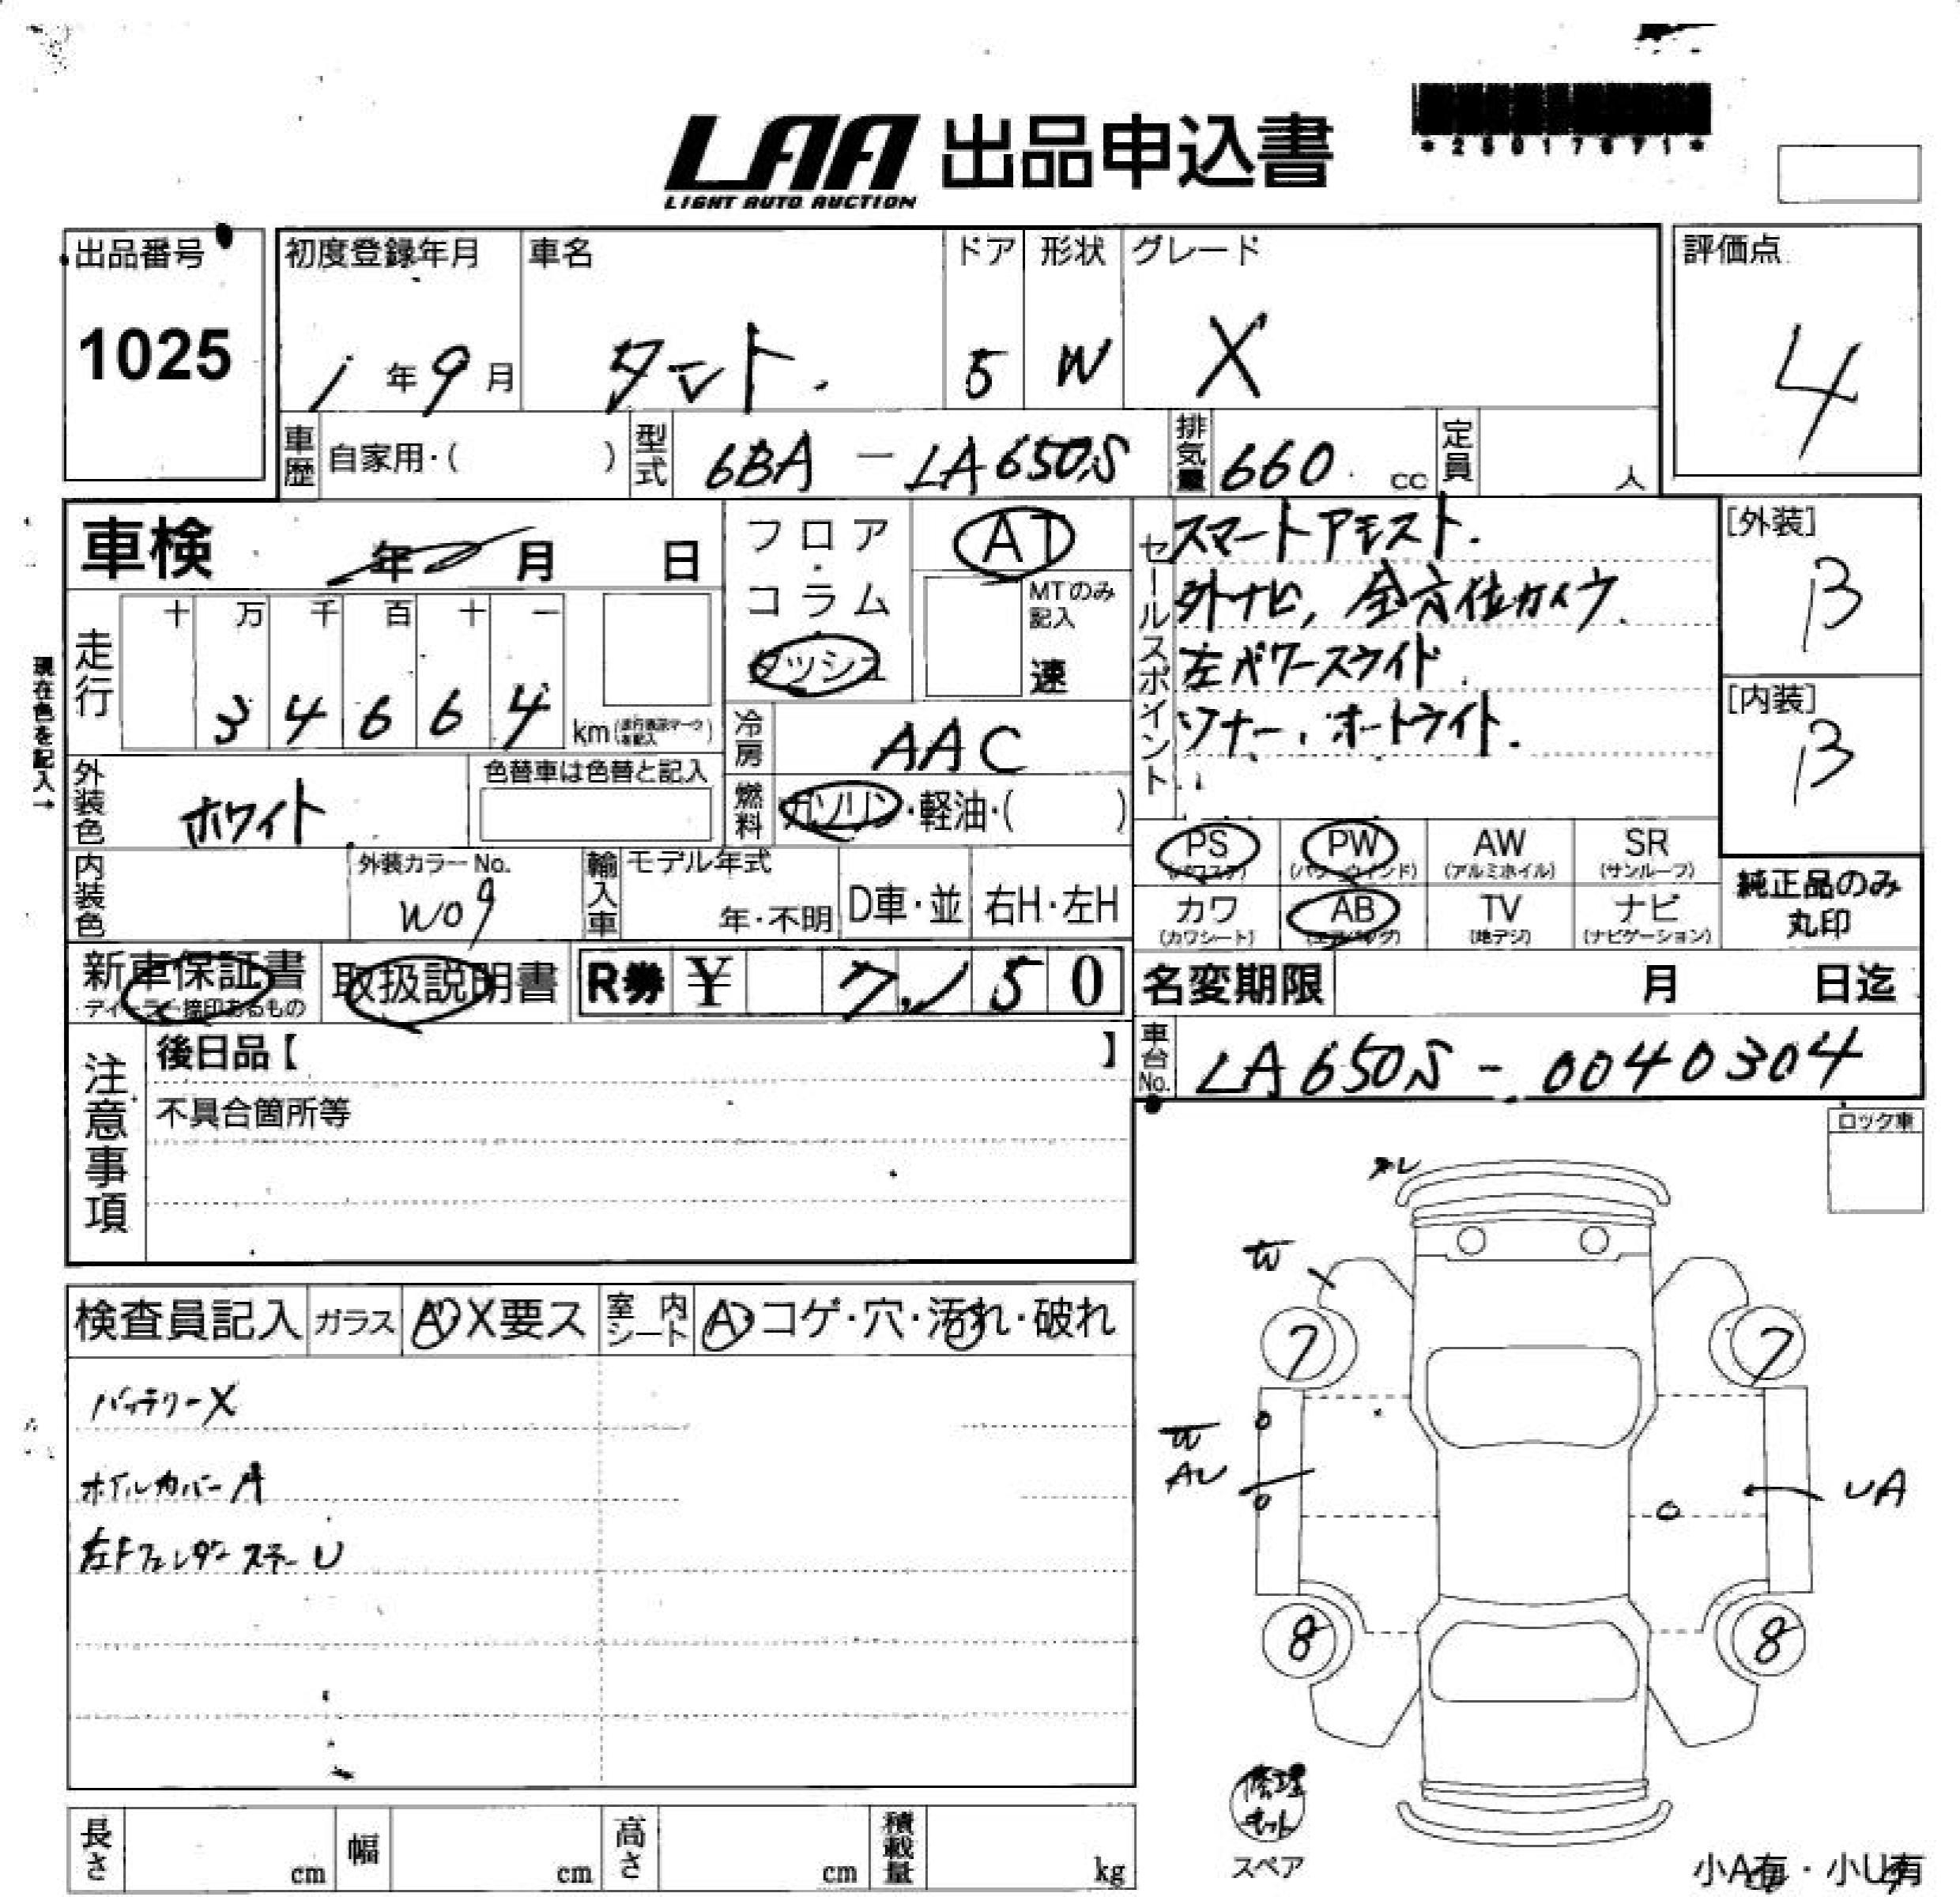 LAA 出品申込書
LIGHT AUTO AUCTION
出品番号
1025
初度登録年月
1年9月
車名
タント.
ドア
5
形状
W
グレード
X
評価点
4
車歴 自家用・( )
型式 6BA-LA650S
排気量 660 cc
定員 人
車検 年 月 日
走行 十 万 千 百 十 一
34664 km
現在色を記入→
フロア・コラム
ダッシュ
AT
MTのみ記入
速
セールスポイント
スマートアシスト.
外ナビ, 全方位カメラ.
左パワースライド
ソナー, オートライト.
[外装]
B
[内装]
B
外装色 ホワイト
色替車は色替と記入
冷房 AAC
燃料 ガソリン・軽油・( )
PS
(パワステ)
PW
(パワーウインド)
AW
(アルミホイル)
SR
(サンルーフ)
カワ
(カワシート)
AB
(エアバッグ)
TV
(地デジ)
ナビ
(ナビゲーション)
純正品のみ
丸印
内装色
外装カラーNo.
W09
輸入車
モデル年式
年・不明
D車・並
右H・左H
新車保証書
ディーラー捺印あるもの
取扱説明書
R券 ¥ 7,150
名変期限 月 日迄
車台No. LA650S-0040304
注意事項
後日品【 】
不具合箇所等
ロック車
検査員記入 ガラス A X要ス
室内シート A コゲ・穴・汚れ・破れ
バッテリーX
ホイルカバーA
左Fフェンダーステー U
W
W
AU
UA
7
7
8
8
修理キット
スペア
長さ cm
幅 cm
高さ cm
積載量 kg
小A有・小U有